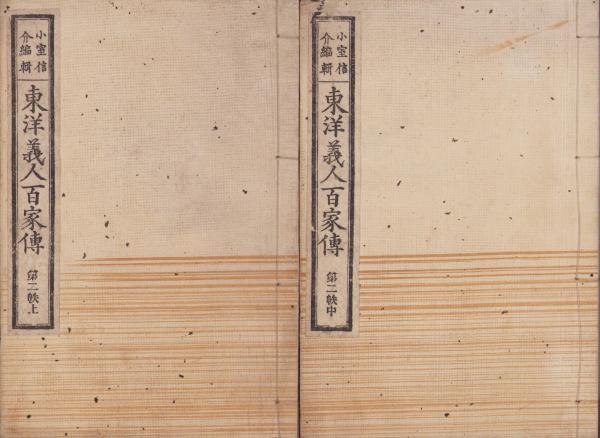 小室信
介編輯
東洋義人百家傳
第二帙上
小室信
介編輯
東洋義人百家傳
第二帙中